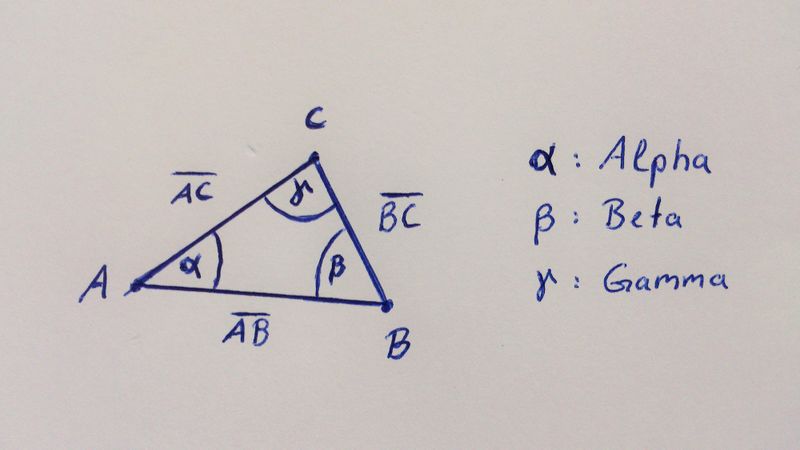 C
A̅C̅
γ
B̅C̅
α
β
A
A̅B̅
B
α : Alpha
β : Beta
γ : Gamma